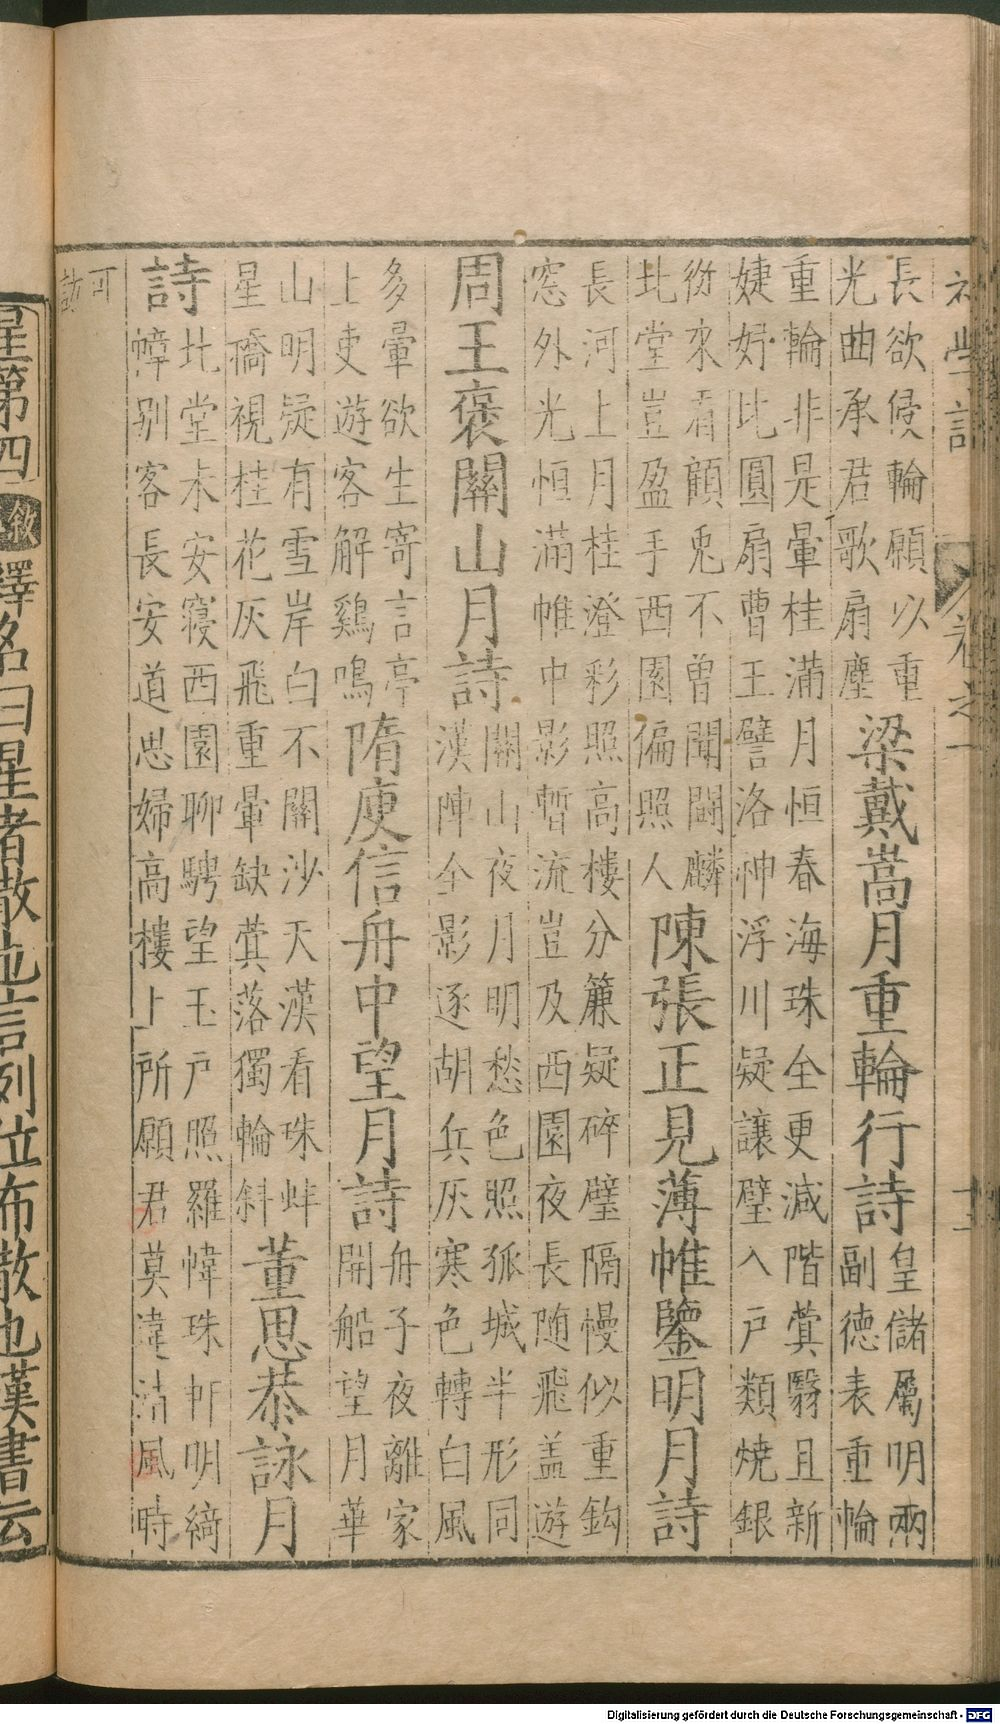 卷之一
長欲侵輪願以重
光曲承君歌扇塵
梁戴嵩月重輪行詩
皇儲屬明兩
副德表重輪
重輪非是暈桂滿月恒春海珠全更減階蓂翳且新
婕妤比圓扇曹王譬洛神浮川疑讓璧入戶類燒銀
從來看顧兔不曾聞鬪麟
北堂豈盈手西園偏照人
陳張正見薄帷鑒明月詩
長河上月桂澄彩照高樓分簾疑碎璧隔幔似重鈎
窓外光恒滿帷中影暫流豈及西園夜長随飛盖遊
周王褒關山月詩
關山夜月明愁色照孤城半形同
漢陣全影逐胡兵灰寒色轉白風
多暈欲生寄言亭
上吏遊客解鷄鳴
隋庾信舟中望月詩
舟子夜離家
開船望月華
山明疑有雪岸白不關沙天漢看珠蚌
星橋視桂花灰飛重暈缺蓂落獨輪斜
董思恭詠月
詩
北堂未安寢西園聊騁望玉戶照羅幃珠軒明綺
幛別客長安道思婦高樓上所願君莫違清風時
可
訪
星第四 敘 釋名曰星者散也言列位布散也漢書云
Digitalisierung gefördert durch die Deutsche Forschungsgemeinschaft - DFG